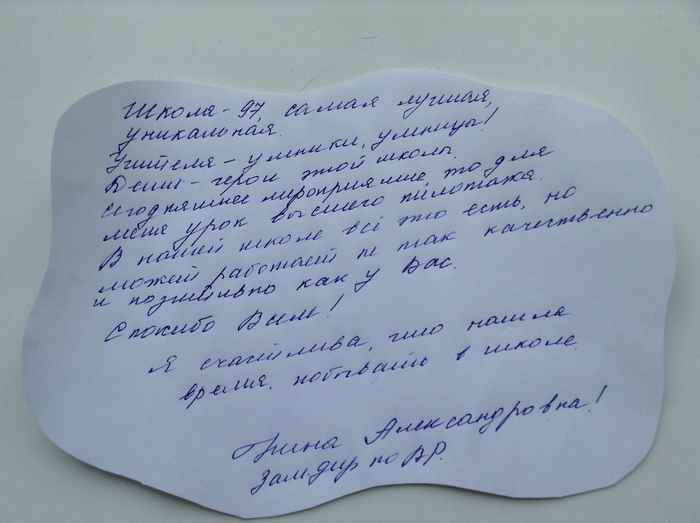 Школа - 97, самая лучшая,
уникальная.
Учителя - умники, умницы!
Дети - герои этой школы.
сегодняшнее мероприятие это для
меня урок высшего пилотажа.
В нашей школе всё это есть, но
может работает не так качественно
и позитивно как у Вас.
Спасибо Всем!
Я счастлива, что нашла
время, побывать в школе
Александровна!
Зам. дир по ВР.